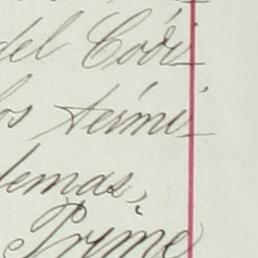 del Códi
os térmi
demas,
Prime